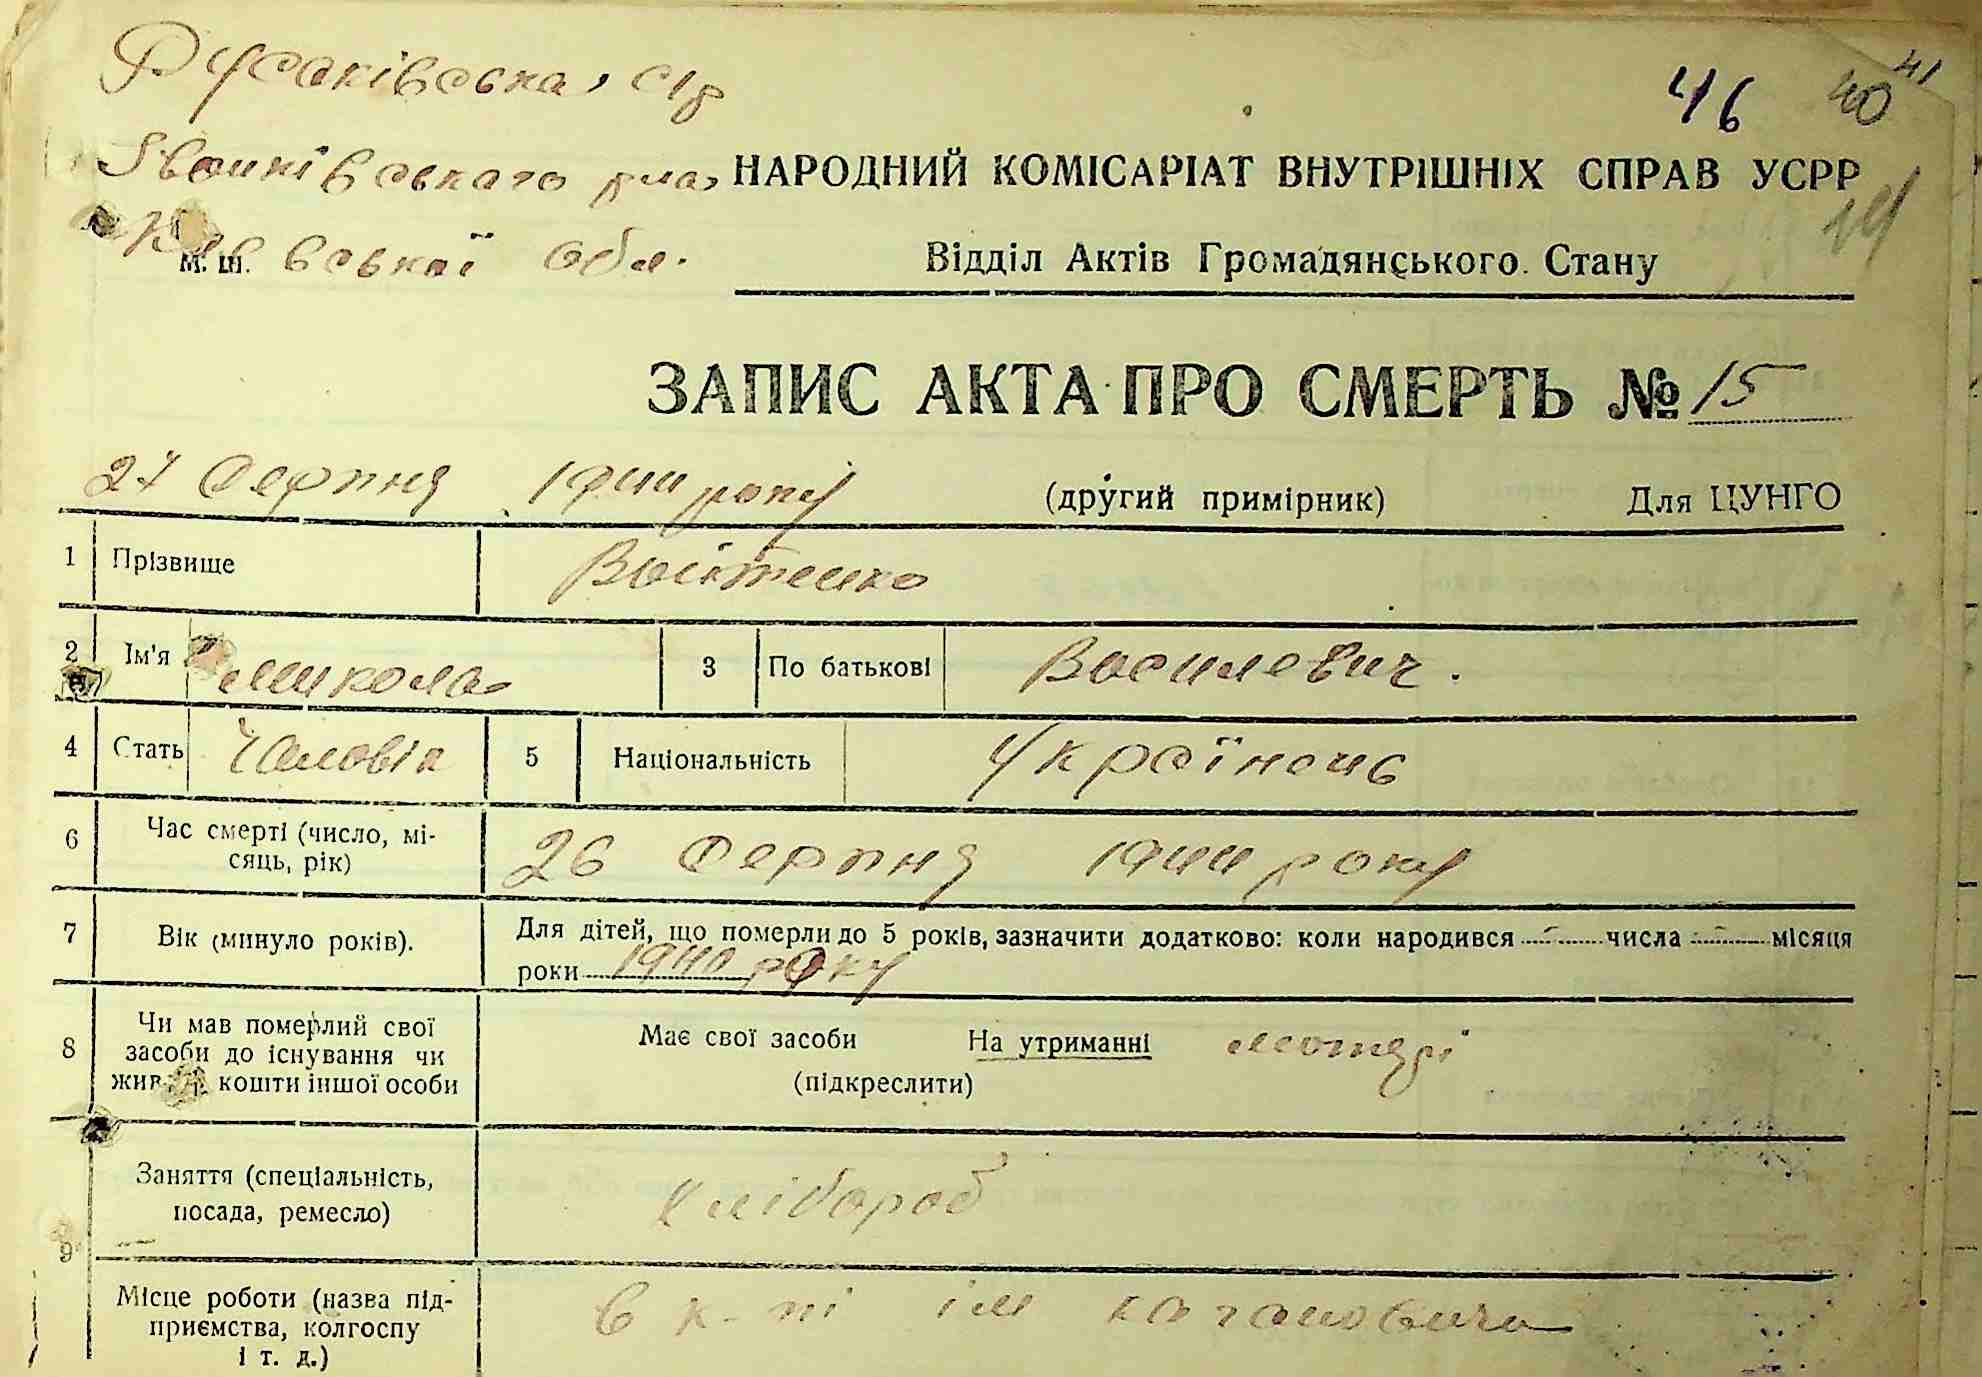 Русаківська с/р
46 40 41
Іванківського р-на,
НАРОДНИЙ КОМІСАРІАТ ВНУТРІШНІХ СПРАВ УСРР
19
Київської обл.
М. Ш.
Відділ Актів Громадянського Стану
ЗАПИС АКТА ПРО СМЕРТЬ № 15
27 Серпня 1944 року (другий примірник) Для ЦУНГО
1 Прізвище Войтенко
2 Ім'я Микола 3 По батькові Василевич.
4 Стать Чоловік 5 Національність Українець
6 Час смерті (число, мі-
сяць, рік) 26 Серпня 1944 року
7 Вік (минуло років). Для дітей, що померли до 5 років, зазначити додатково: коли народився - числа - місяця
роки 1940 року
8 Чи мав померлий свої
засоби до існування чи
жив на кошти іншої особи
Має свої засоби На утриманні матері
(підкреслити)
9 Заняття (спеціальність,
посада, ремесло) Хлібороб
Місце роботи (назва під-
приємства, колгоспу
і т. д.)
в к-пі ім кагановича